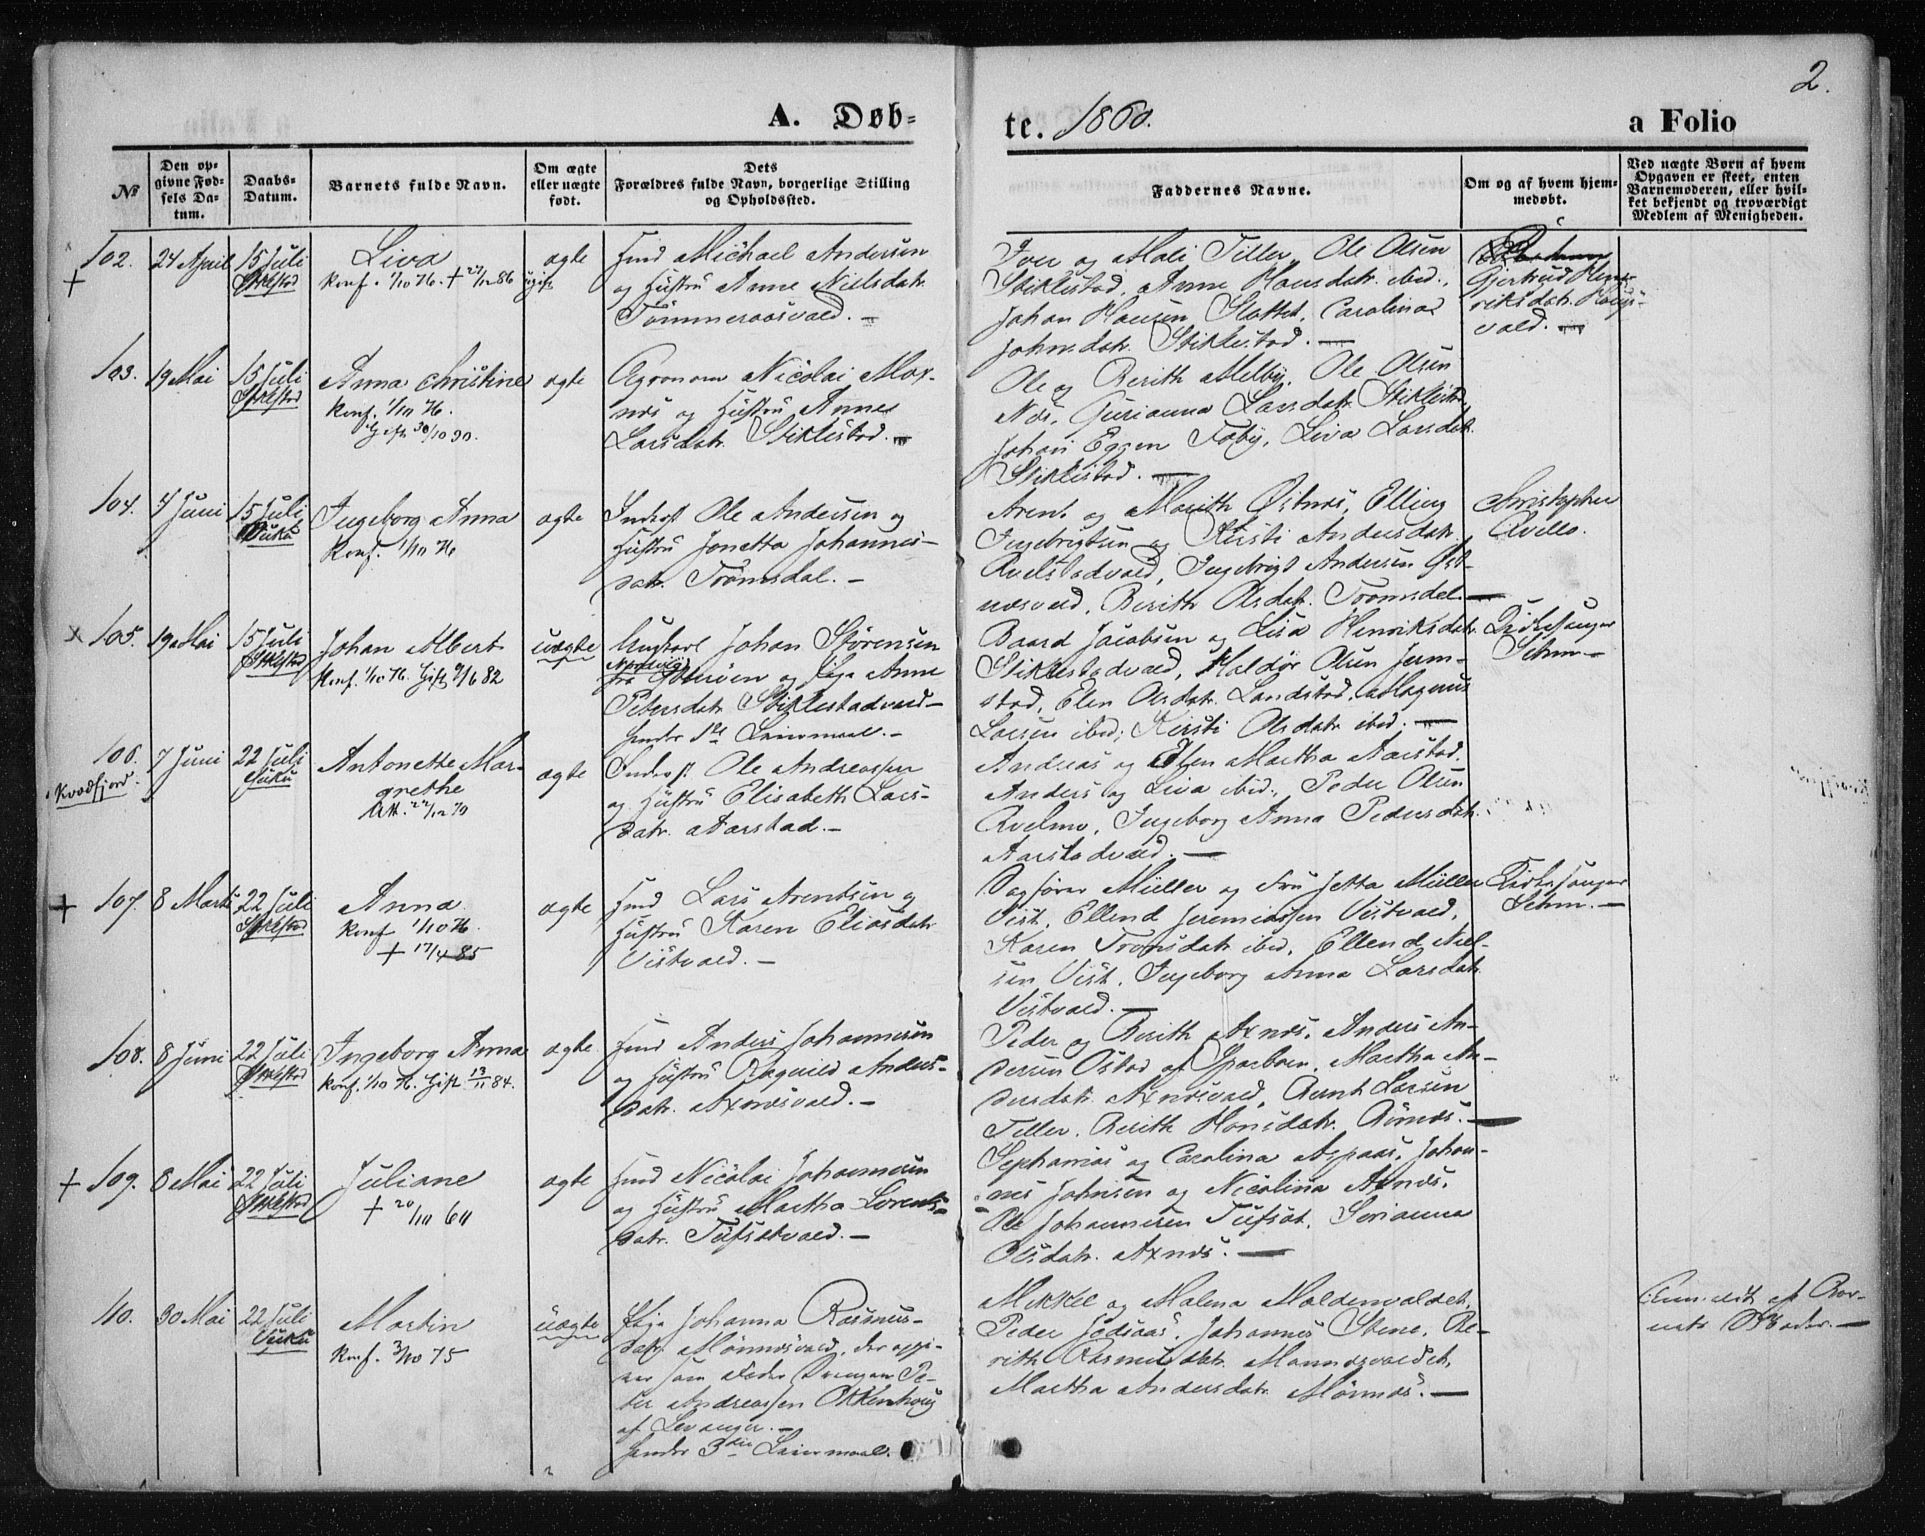 2.
A. Døb-
te. 1860.
a Folio
No
Den op-
givne Fød-
sels Da-
tum.
Daabs-
Datum.
Barnets fulde Navn.
Om ægte
eller uægte
født.
Dets
Forældres fulde Navn, borgerlige Stilling
og Opholdssted.
Faddernes Navne.
Om og af hvem hjem-
medøbt.
Ved uægte Børn af hvem
Opgaven er skeet, enten
Barnemoderen, eller hvil-
ket bekjendt og troværdigt
Medlem af Menigheden.
102. 24 April 15 Juli
Stiklestad
Liva
Konf. 1/10 76. + 27/12 86 ugift
ægte
Huusmd Michael Andersen
og Hustru Anne Nielsdatr
Tømmeraasvald. —
Iver og Mali Tiller, Ole Olsen
Stiklestad, Anne Hansdatr ibid.,
Johan Hansen Slottet, Carolina
Johnsdatr Stiklestad. —
Gjertrud Hen-
riksdatr. Haugs-
vald. —
103. 19 Mai 15 Juli
Stiklestad
Anna Christine
Konf. 1/10 76.
Gift 30/10 90.
ægte
Agronom Nicolai Mox-
næs og Hustru Anne
Larsdatr Stiklestad. —
Ole og Berith Melby, Ole Olsen
Næs, Gurianna Larsdatr Stiklestad,
Johan Eggen Faby, Liva Larsdatr
Stiklestad. —
104. 4 Juni 15 Juli
Vuku
Ingeborg Anna
Konf. 1/10 76
ægte
Inderst Ole Andersen og
Hustru Jonetta Johannes-
datr. Trømsdal. —
Arent og Marith Østnæs, Elling
Ingebrigtsen og Kirsti Andersdatr
Ingebrigt Andersen Øst-
næsvald, Berith Olsdatr. Trømsdal. —
Christopher
105. 19 Mai 15 Juli
Stiklestad
Johan Albert
Konf. 1/10 76. Gift 9/6 82
uægte
Ungkarl Johan Sørensen
fra Ytterøen og Pige Anne
Petersdatr Stiklestadvald —
Leiermaal. —
Baard Jacobsen og Lisa Henriksdatr
Stiklestadvald, Haldor Olsen Jerm-
stad, Elen Olsdatr Landstad, Magnus
Larsen ibid, Kirsti Olsdatr ibid. —
Kirkesanger
Sehm —
106.
Kvædfjord.
7 Juni 22 Juli
Vuku
Antonette Mar-
grethe
Att. 22/12 70
ægte
Inderst Ole Andreassen
og Hustru Elisabeth Lars-
datr. Aarstad. —
Andreas og Elen Martha Aarstad,
Anders og Liva ibid., Peder Olsen
Ingeborg Anna Pedersdatr.
Aarstadvald. —
107. 8 Marts 22 Juli
Stiklestad
Anna
Konf 1/10 76.
+ 17/4 85
ægte
Huusmd Lars Arentsen og
Hustru Karen Eliasdatr
Vistvald. —
Sagfører Müller og Fru Jetta Müller
Vist, Ellend Jeremiassen Vistvald,
Karen Tronsdatr ibid, Ellend Niel-
sen Vist, Ingeborg Anna Larsdatr
Vistvald. —
Kirkesanger
Sehm. —
108. 8 Juni 22 Juli
Stiklestad
Ingeborg Anna
Konf. 1/10 76. Gift 13/11 84.
ægte
Huusmd Anders Johannesen
og Hustru Ragnild Anders-
datr. Axnæsvald. —
Peder og Berith Axnæs, Anders An-
dersen Østad af Sparboen, Martha An-
dersdatr Axnæsvald, Arnt Larsen
Tiller, Berith Hansdatr. —
109. 8 Mai 22 Juli
Stiklestad
Juliane
+ 20/10 60
ægte
Huusmd Nicolai Johannesen
og Hustru Martha Lorents-
datr. Tufsetvald. —
Sephanias og Carolina Aspaas, Johan-
nes Johnsen og Nicolina Axnæs,
Ole Johannesen Tufset, Serianna
Olsdatr. Axnæs. —
110. 30 Mai 22 Juli
Vuku
Martin
Konf. 3/10 75
uægte
Pige Johanna Rasmus-
datr Mønnæsvald, der opgi-
ver som Fader Drengen Pe-
ter Andreassen Okkenhoug
af Levanger. —
hendes 3die Leiermaal.
Mikkel og Malena Moldenvaldet,
Peder Jødsaas, Johannes Stene, Be-
rith Rasmusdatr. Mønnæsvaldet,
Martha Andersdatr Mønnæs. —
Anmeldt af Bar-
nets Moder. —